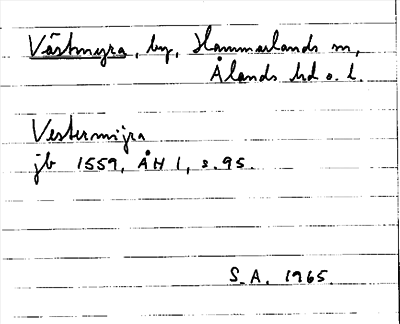 Västmyra, by, Hammarlands sn,
Ålands hd o. l.
Vestermijra
jb 1559, ÅH 1, s. 95.
S.A. 1965.